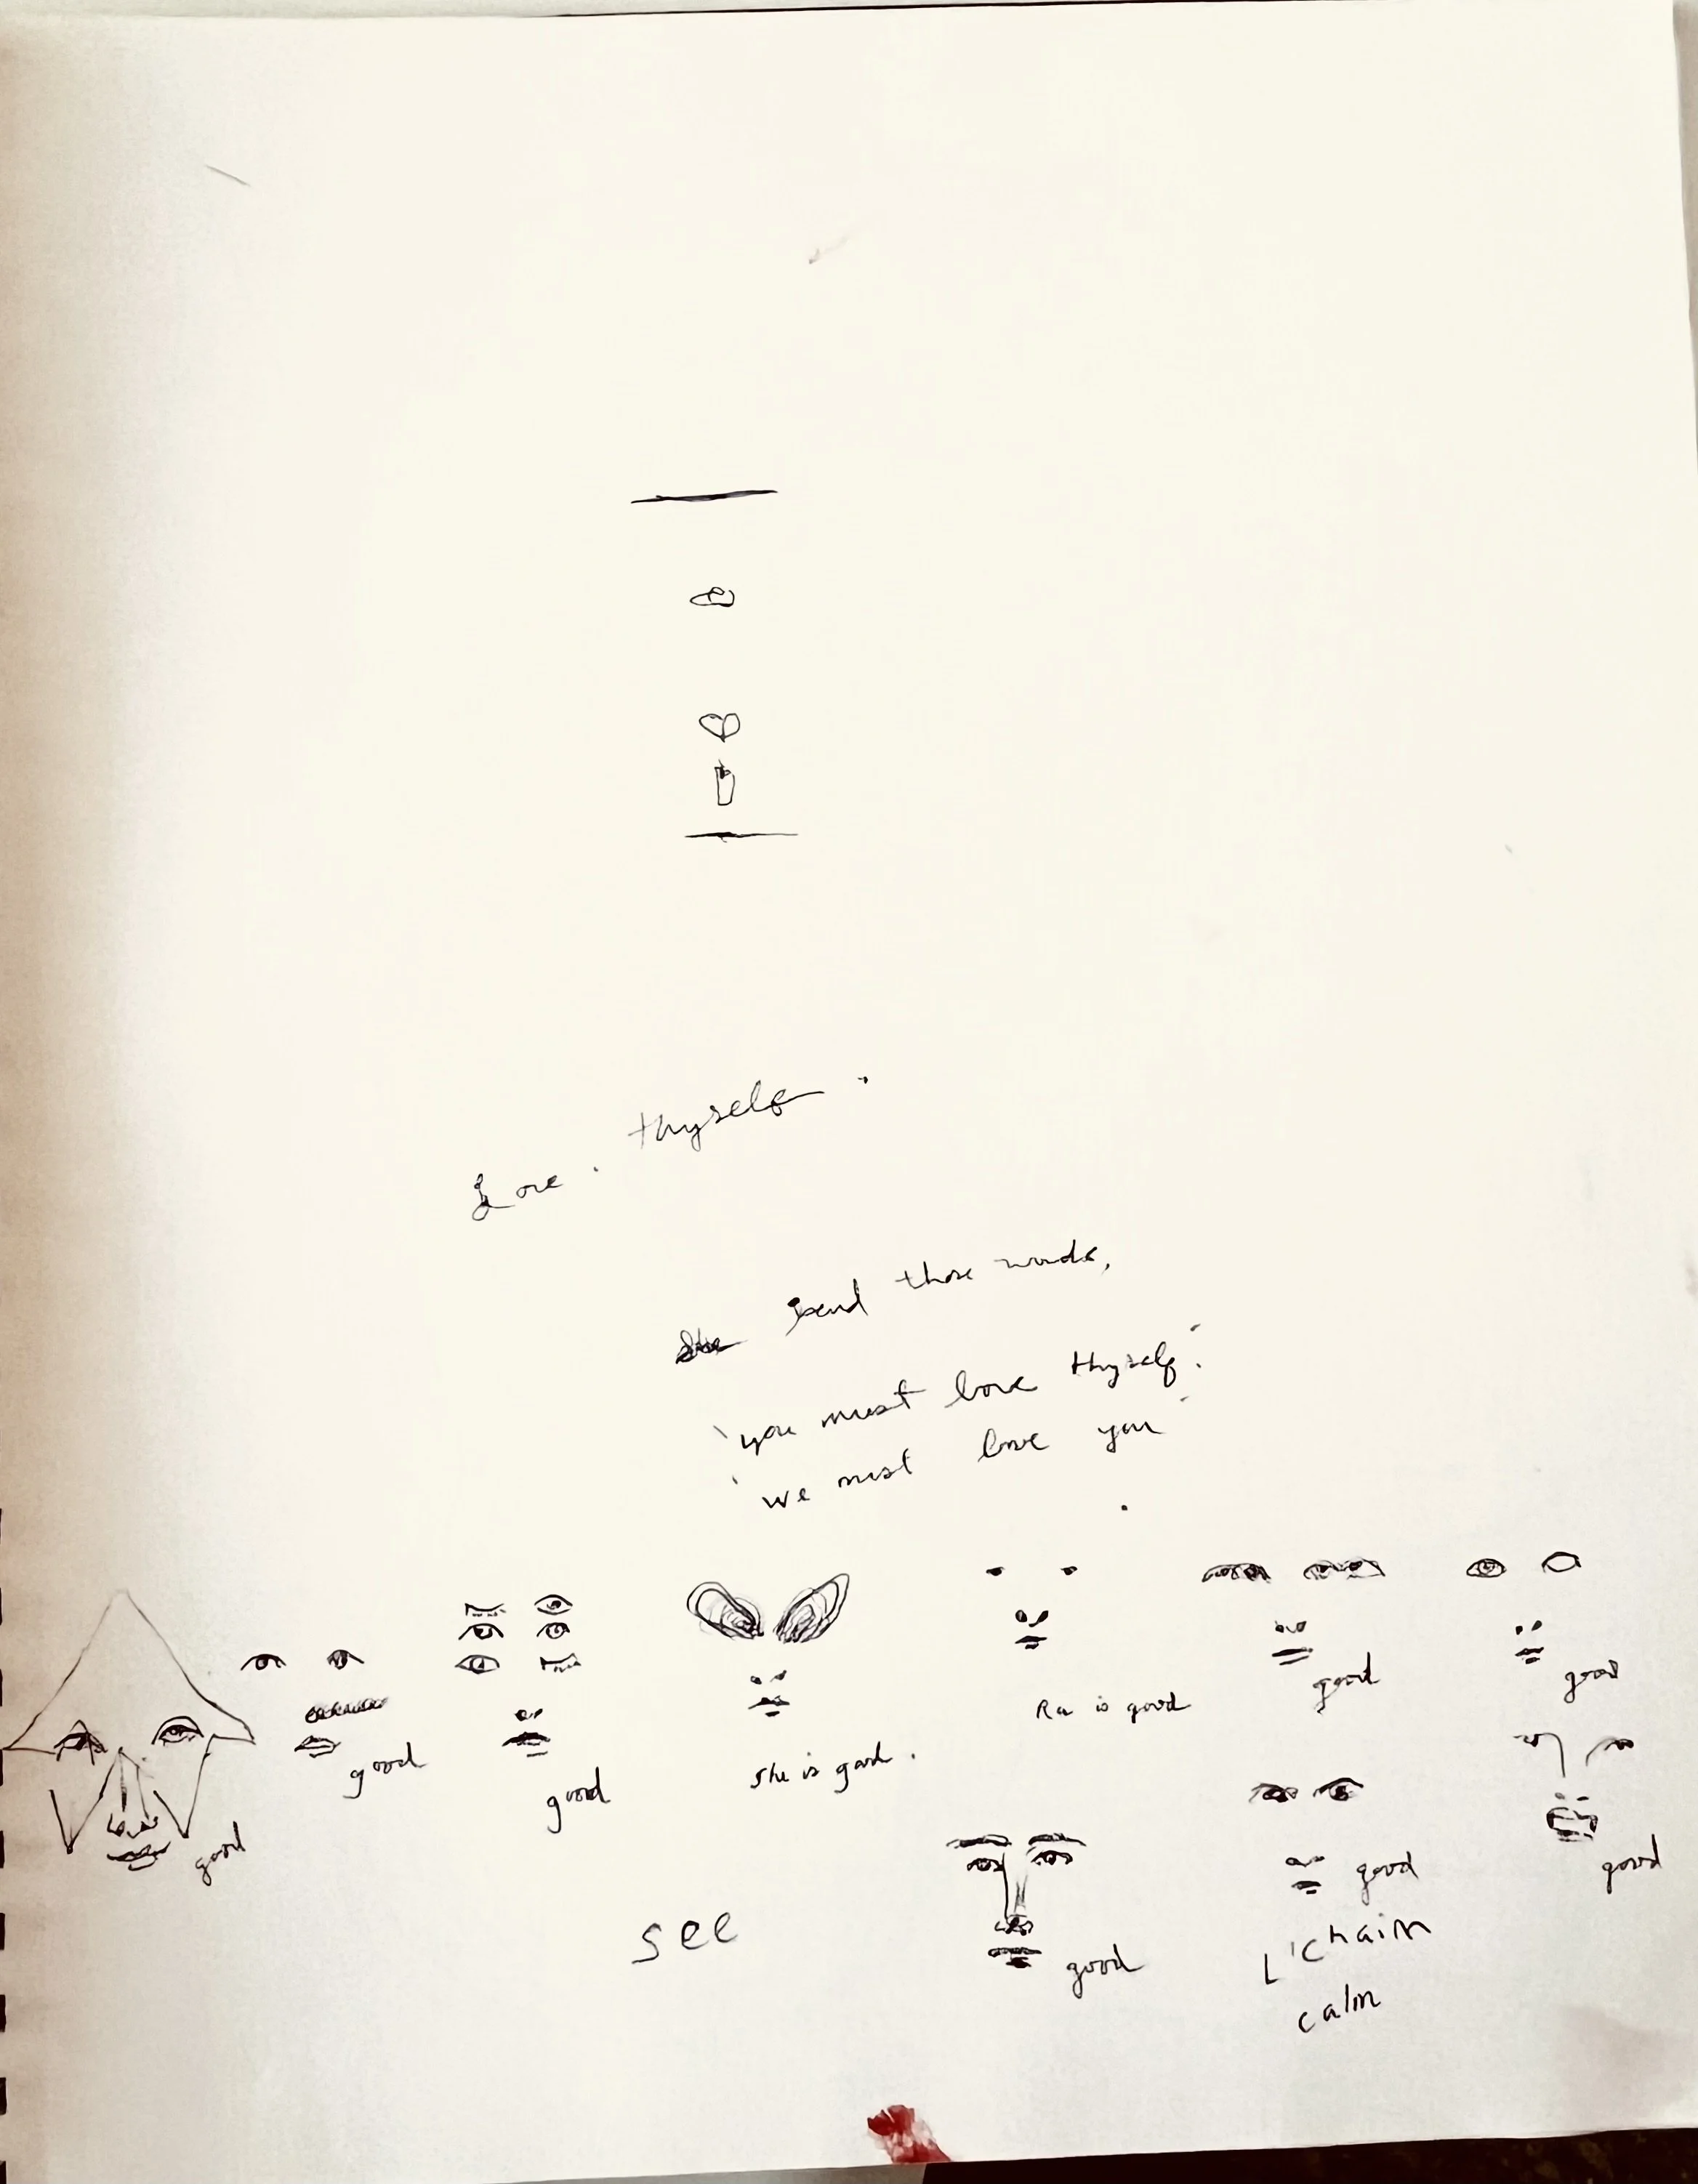 Love . thyself .
send those words,
'you must love thyself.'
'we must love you'
good
good
good
she is good .
Ra is good
good
good
good
good
good
see
L'Chaim
calm